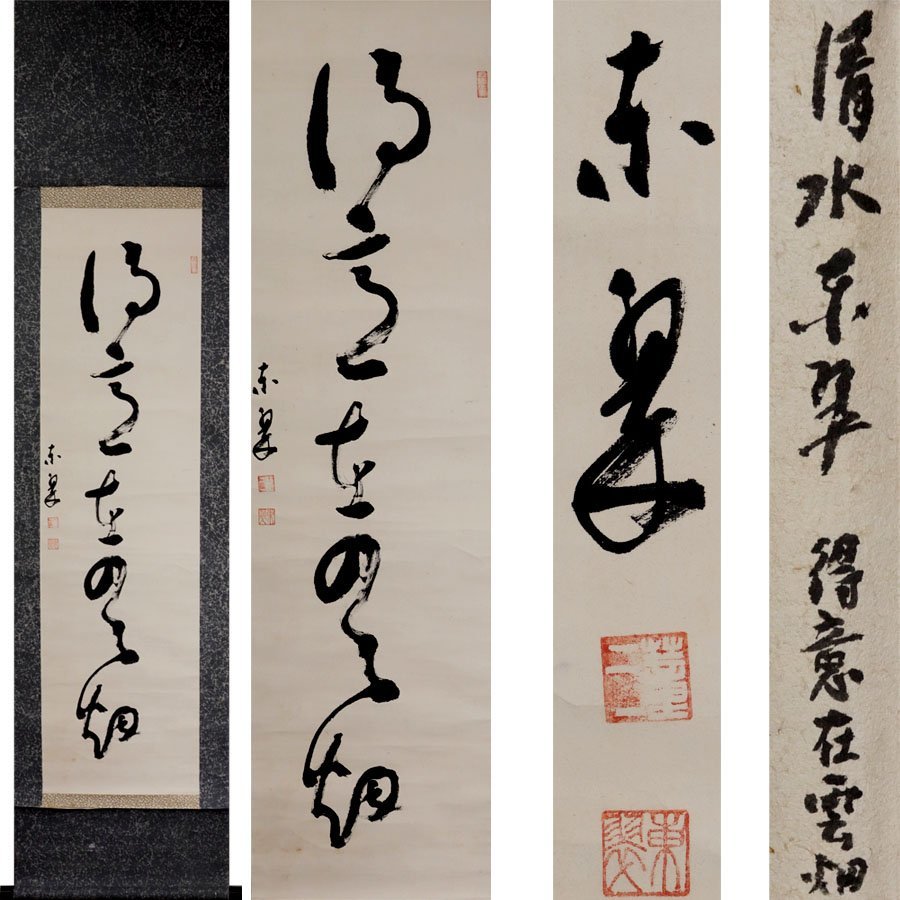 得意在雲畑
東翠
得意在雲畑
東翠
東翠
東翠
清水東翠 得意在雲畑